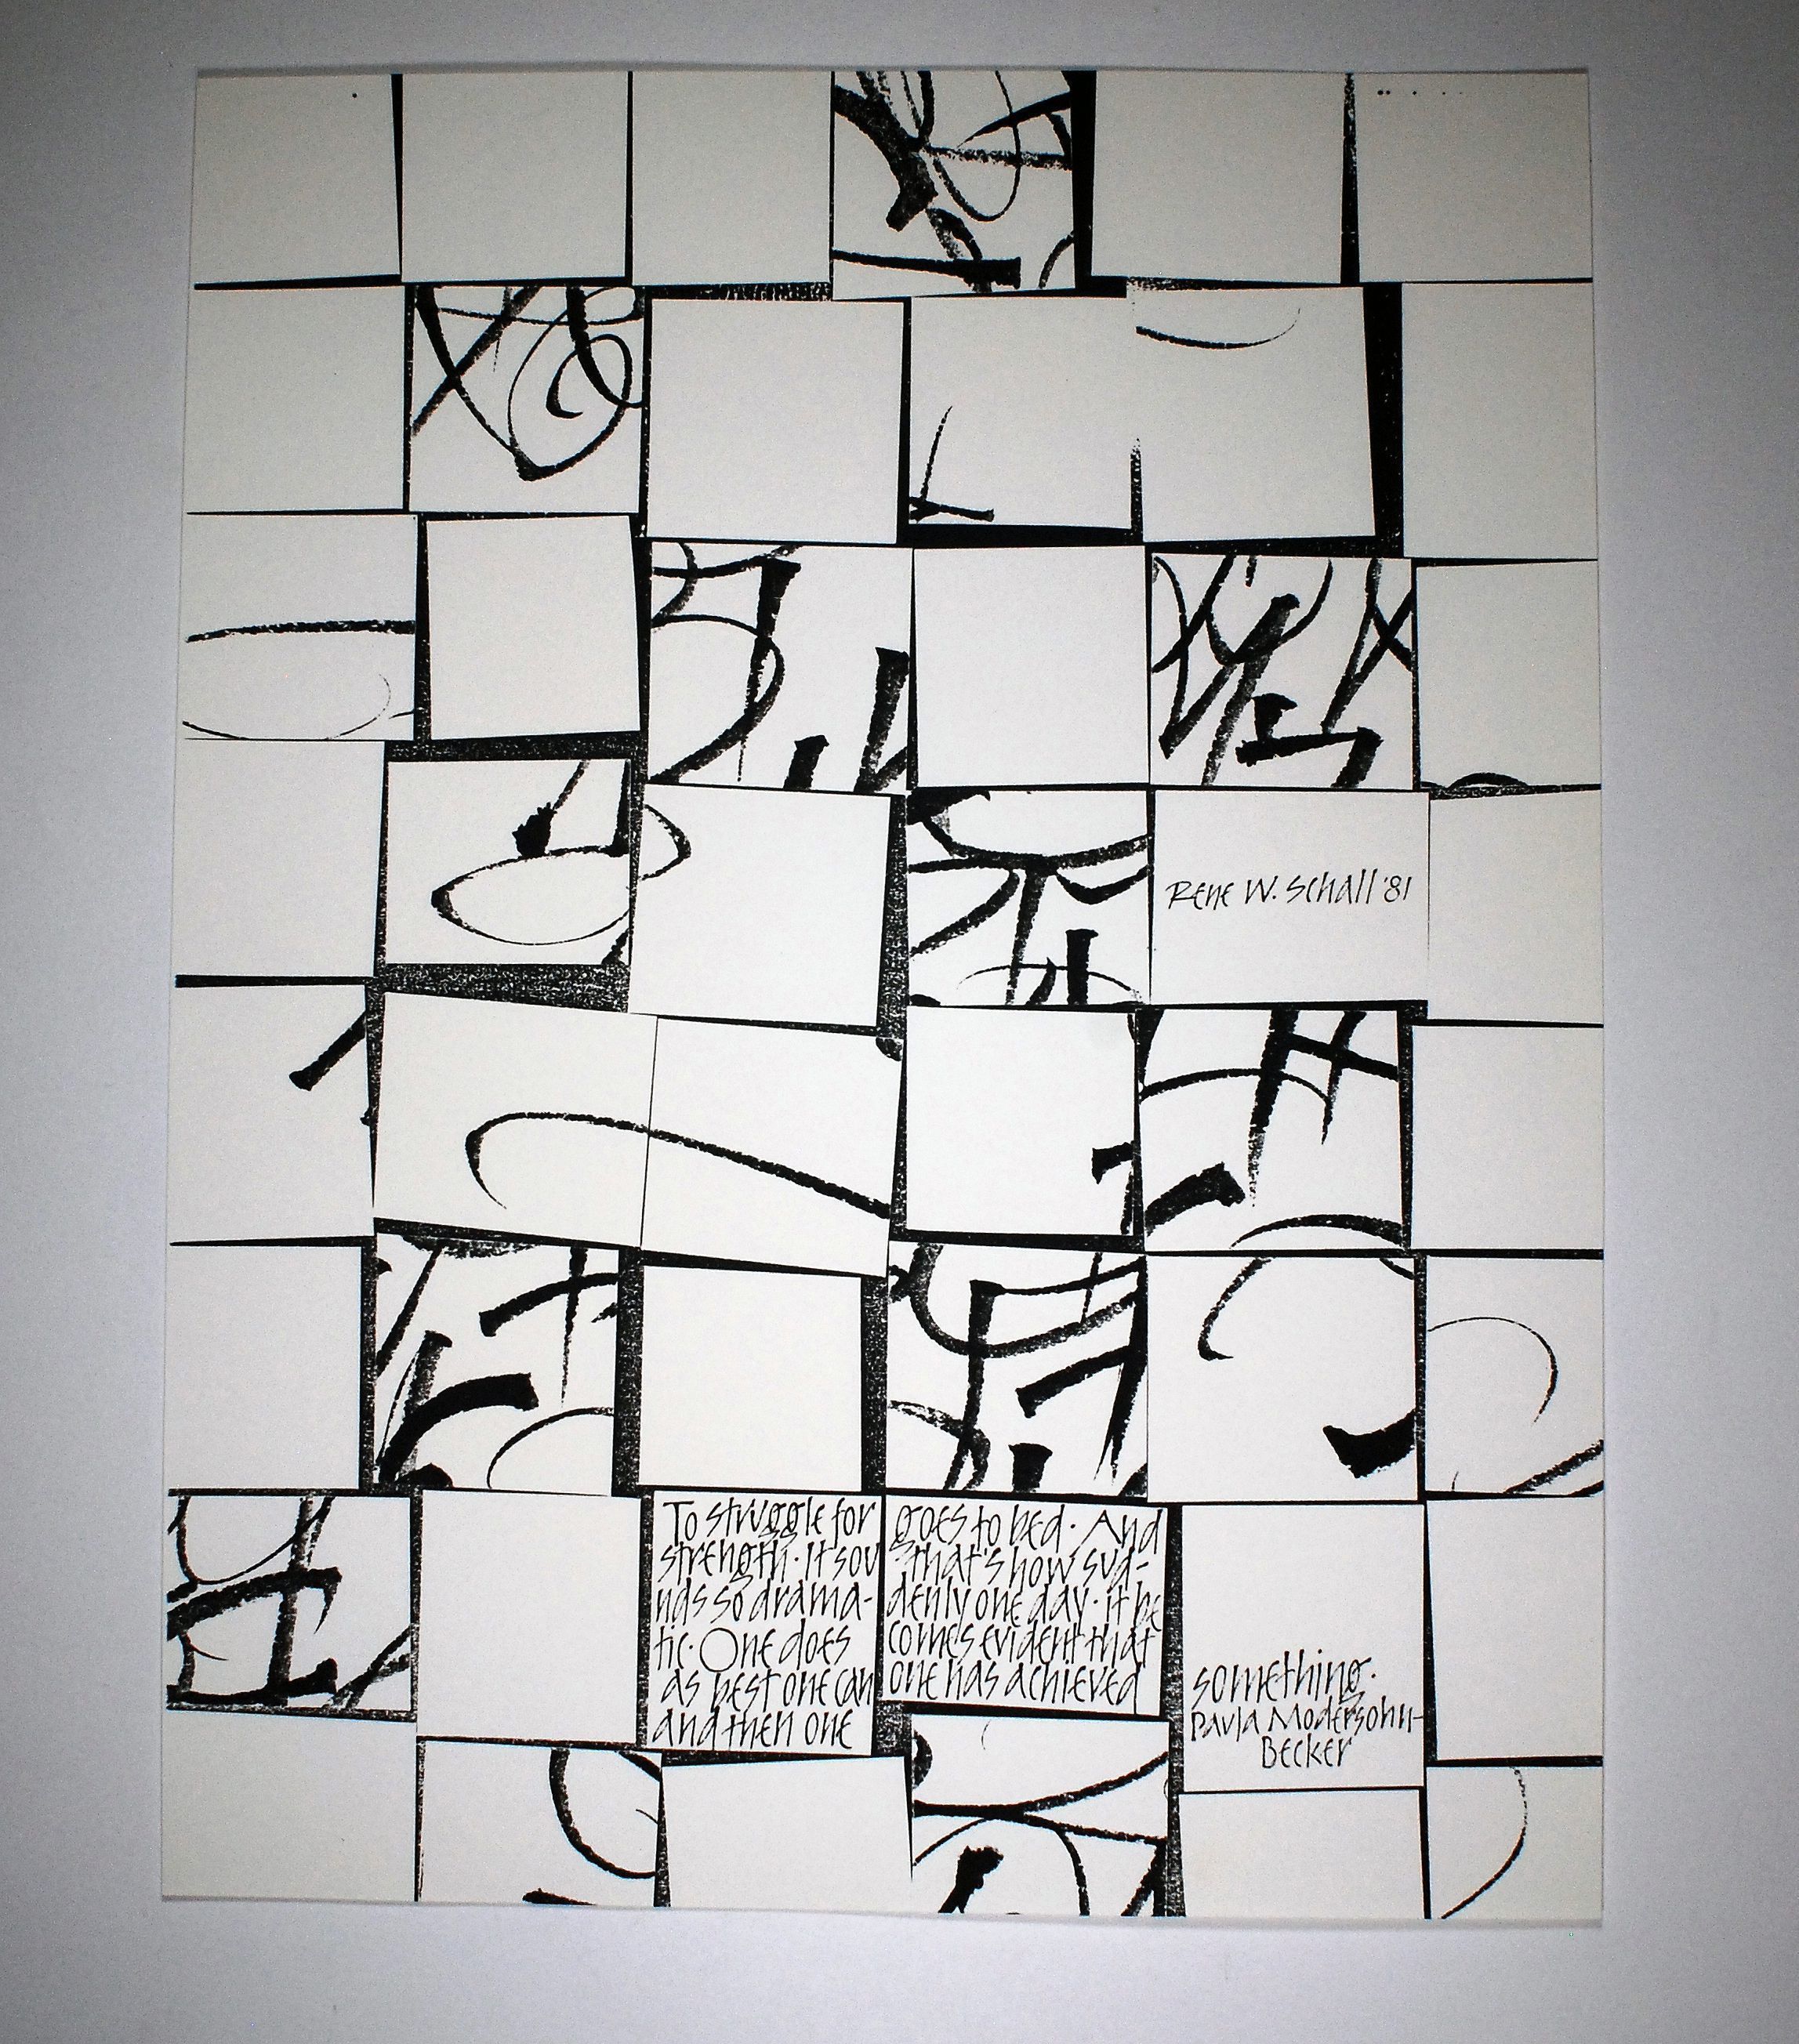 Rene W. Schall '81
To struggle for
strength · It sou
nds so drama-
tic · One does
as best one can
and then one
goes to bed · And
that's how sud-
denly one day · it be
comes evident that
one has achieved
something ·
Paula Modersohn-
Becker